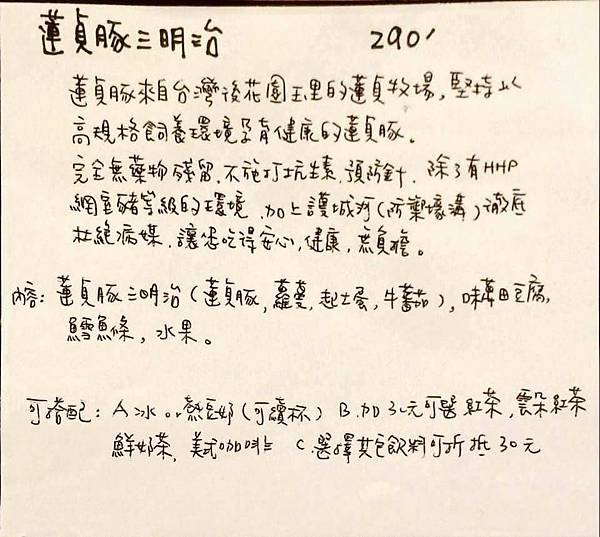 蓮貞豚三明治 290'
蓮貞豚來自台灣後花園玉里的蓮貞牧場,堅持以
高規格飼養環境孕育健康的蓮貞豚。
完全無藥物殘留,不施打坑生素,預防針,除了有HHP
網室豬等級的環境,加上護城河(防禦壕溝)徹底
杜絕病媒,讓您吃得安心,健康,無負擔。
內容:蓮貞豚三明治(蓮貞豚,蘿蔓,起士蛋,牛蕃茄),味萬田豆腐,
鱈魚條,水果。
可搭配:A冰or熱豆奶(可續杯) B.加30元可選紅茶,雲朵紅茶
鮮奶茶,美式咖啡 C.選擇其它飲料可折抵30元